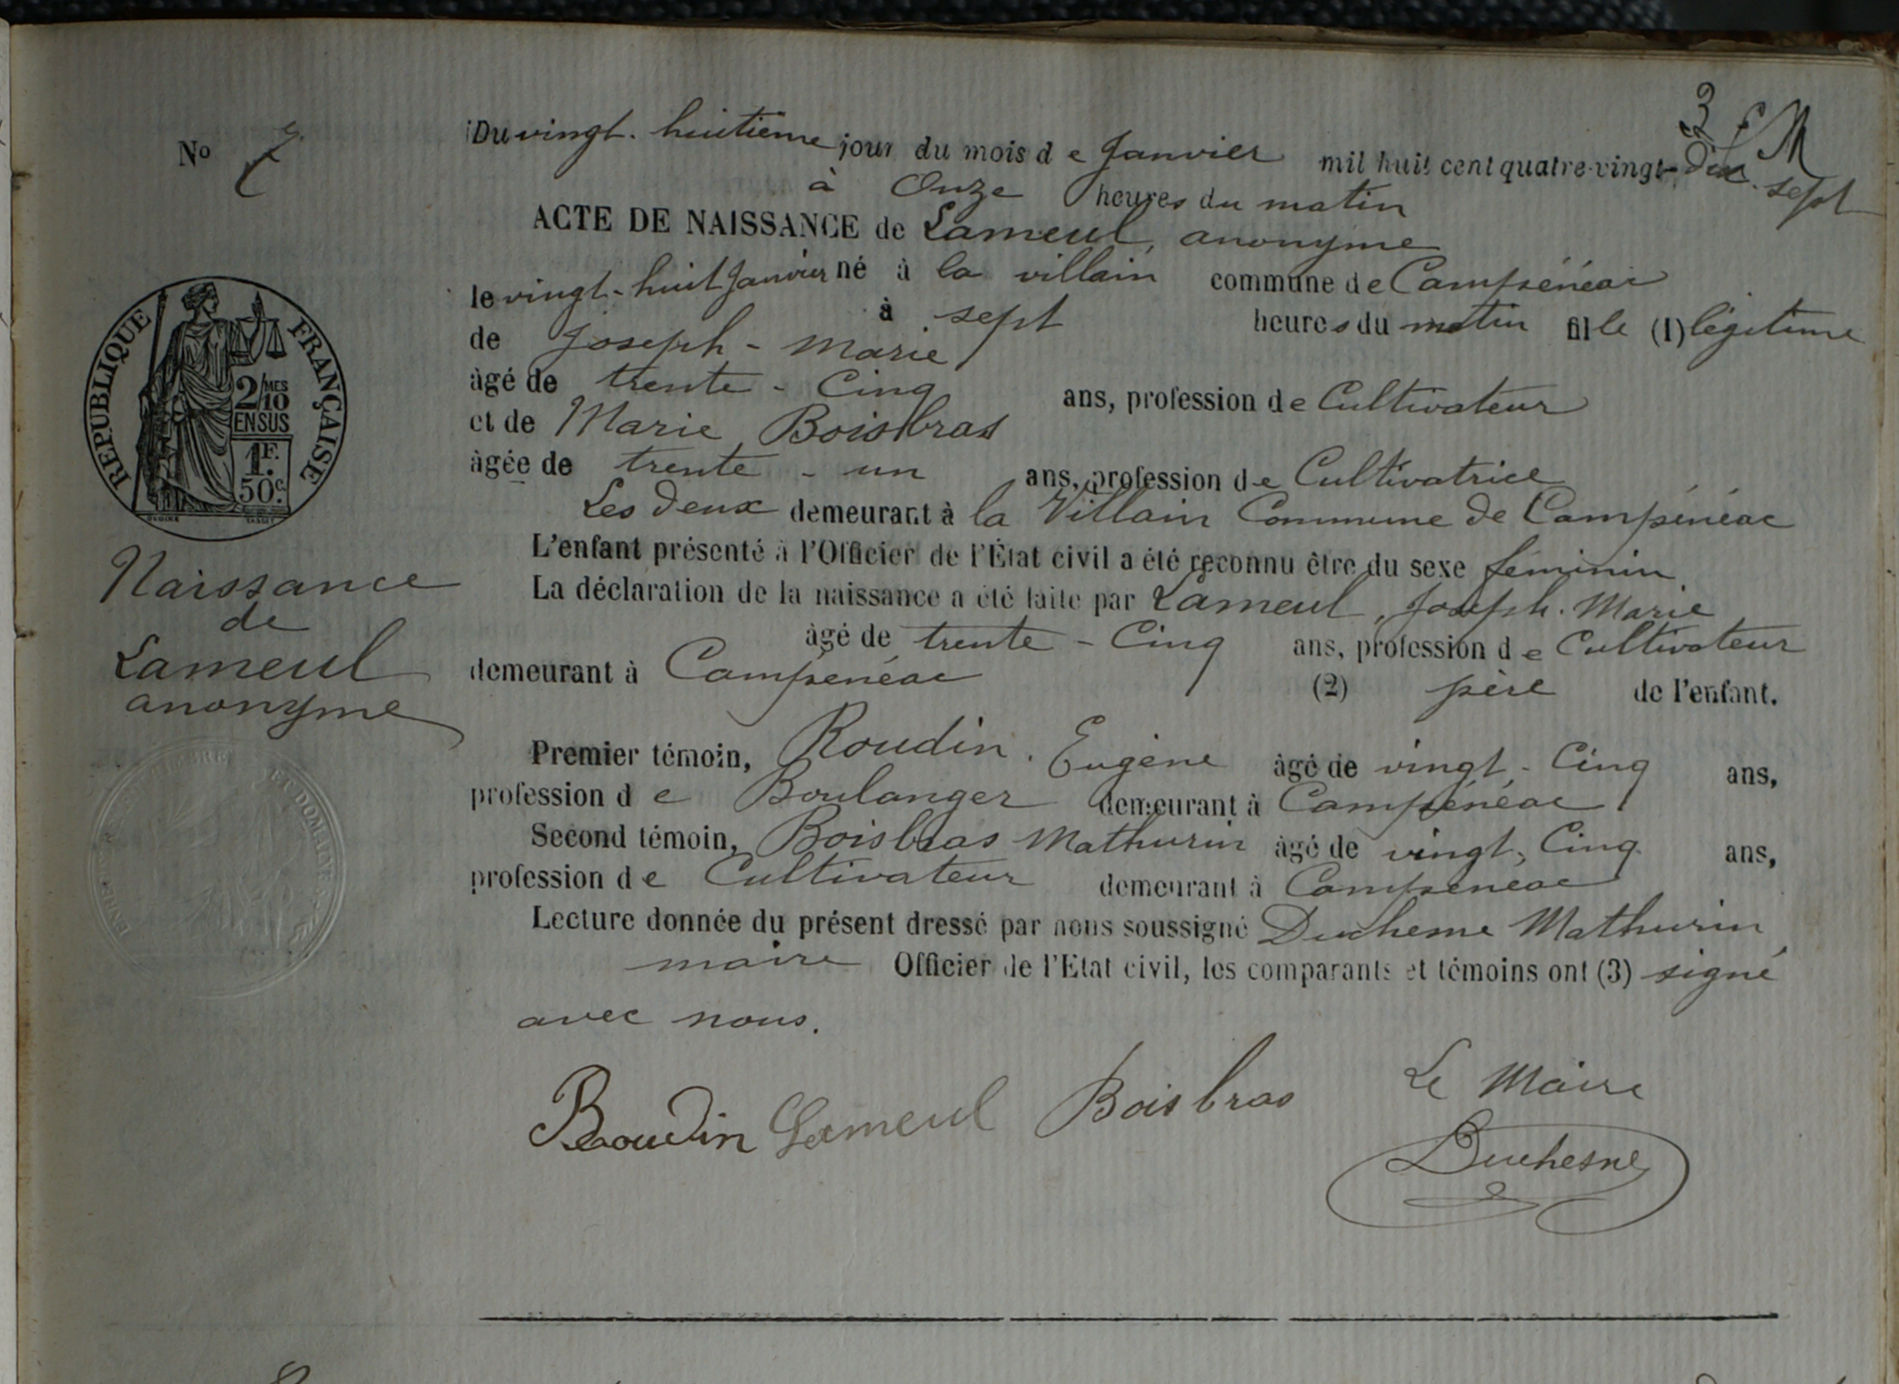 3 f M
No 7
Du vingt-huitième jour du mois de Janvier mil huit cent quatre-vingt-Dix-sept
à Onze heures du matin
ACTE DE NAISSANCE de Lameul, anonyme
le vingt-huit Janvier né à la villain commune de Campénéac
à sept heures du matin fille (1) légitime
de Joseph-Marie
âgé de trente-Cinq ans, profession de Cultivateur
et de Marie Boisbras
âgée de trente-un ans, profession de Cultivatrice
Les Deux demeurant à la Villain Commune de Campénéac
L'enfant présenté à l'Officier de l'État civil a été reconnu être du sexe féminin.
La déclaration de la naissance a été faite par Lameul, Joseph-Marie
âgé de trente-Cinq ans, profession de Cultivateur
demeurant à Campénéac (2) père de l'enfant.
Premier témoin, Roudin Eugène âgé de vingt-Cinq ans,
profession de Boulanger demeurant à Campénéac
Second témoin, Boisbras Mathurin âgé de vingt-Cinq ans,
profession de Cultivateur demeurant à Campénéac
Lecture donnée du présent dressé par nous soussigné Duchesne Mathurin
maire Officier de l'État civil, les comparants et témoins ont (3) signé
avec nous.
Roudin Lameul Boisbras Le Maire
Duchesne
RÉPUBLIQUE FRANÇAISE
2/10 MES
EN SUS
1F.
50c.
Naissance
de
Lameul
anonyme